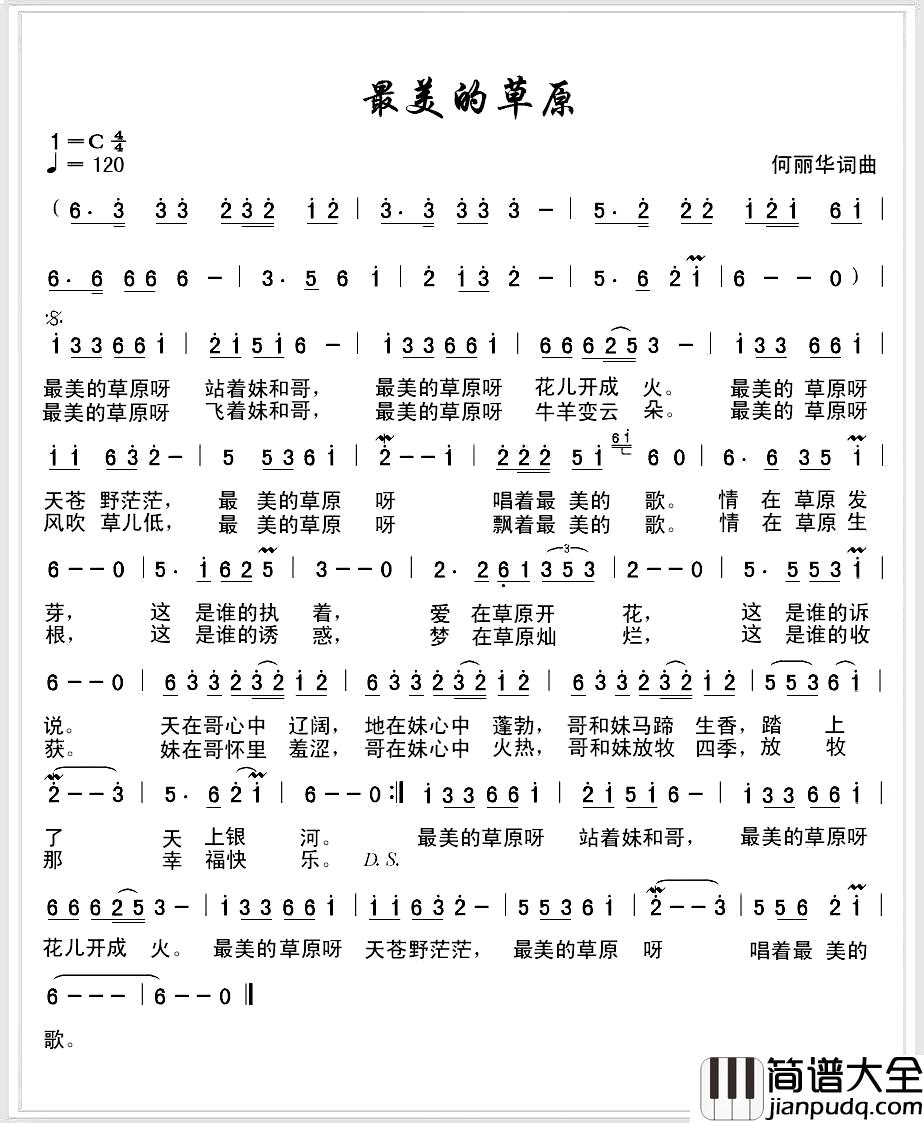 最美的草原
1=C 4/4
♩= 120
何丽华词曲
(6. 3 33 232 12 | 3. 3 33 3 - | 5. 2 22 121 61 |
6. 6 66 6 - | 3. 5 6 1 | 2 13 2 - | 5. 6 21 | 6 - - 0) |
1 33661 | 21516 - | 133661 | 666253 - | 133 661 |
最美的草原呀 站着妹和哥, 最美的草原呀 花儿开成 火。 最美的 草原呀
最美的草原呀 飞着妹和哥, 最美的草原呀 牛羊变云 朵。 最美的 草原呀
11 632 - | 5 5361 | 2 - - 1 | 222 51 61 60 | 6. 6 35 1 |
天苍 野茫茫, 最 美的草原 呀 唱着最 美的 歌。 情 在 草原 发
风吹 草儿低, 最 美的草原 呀 飘着最 美的 歌。 情 在 草原 生
6 - - 0 | 5. 1625 | 3 - - 0 | 2. 261 353 3 | 2 - - 0 | 5. 5531 |
芽, 这 是谁的执 着, 爱 在草原开 花, 这 是谁的诉
根, 这 是谁的诱 惑, 梦 在草原灿 烂, 这 是谁的收
6 - - 0 | 6332 32 12 | 6332 32 12 | 6332 32 12 | 5536 1 |
说。 天在哥心中 辽阔, 地在妹心中 蓬勃, 哥和妹马蹄 生香, 踏 上
获。 妹在哥怀里 羞涩, 哥在妹心中 火热, 哥和妹放牧 四季, 放 牧
2 - - 3 | 5. 621 | 6 - - 0 :| 133661 | 21516 - | 133661 |
了 天 上银 河。 最美的草原呀 站着妹和哥, 最美的草原呀
那 幸 福快 乐。 D.S.
666253 - | 133661 | 11632 - | 55361 | 2 - - 3 | 556 21 |
花儿开成 火。 最美的草原呀 天苍野茫茫, 最美的草原 呀 唱着最 美的
6 - - - | 6 - - 0 ||
歌。
简谱大全
jianpudq.com